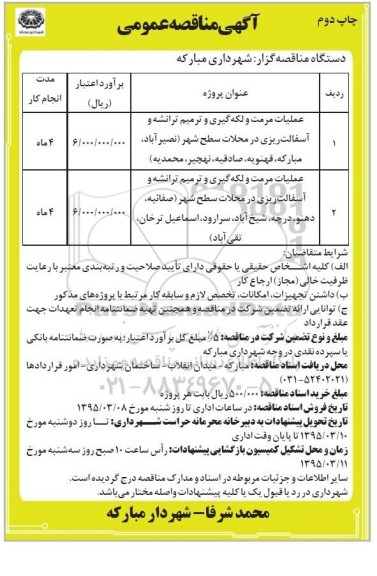 چاپ دوم
آگهی مناقصه عمومی
دستگاه مناقصه گزار: شهرداری مبارکه
ردیف
عنوان پروژه
برآورد اعتبار (ریال)
مدت انجام کار
۱
عملیات مرمت و لکه گیری و ترمیم ترانشه و
آسفالت ریزی در محلات سطح شهر (نصیرآباد،
مبارکه، قهنویه، صادقیه، نهچیر، محمدیه)
۶/۰۰۰/۰۰۰/۰۰۰
۴ ماه
۲
عملیات مرمت و لکه گیری و ترمیم ترانشه و
آسفالت ریزی در محلات سطح شهر (صفائیه،
دهنو، درچه، شیخ آباد، سرارود، اسماعیل ترخان،
تقی آباد)
۶/۰۰۰/۰۰۰/۰۰۰
۴ ماه
شرایط متقاضیان:
الف) کلیه اشخاص حقیقی یا حقوقی دارای تأیید صلاحیت و رتبه بندی معتبر با رعایت
ظرفیت خالی (مجاز) ارجاع کار
ب) داشتن تجهیزات، امکانات، تخصص لازم و سابقه کار مرتبط با پروژه های مذکور
ج) توانایی ارائه تضمین شرکت در مناقصه و همچنین تهیه ضمانتنامه انجام تعهدات جهت
عقد قرارداد
مبلغ و نوع تضمین شرکت در مناقصه: ۵٪ مبلغ کل برآورد اعتبار؛ به صورت ضمانتنامه بانکی
یا سپرده نقدی در وجه شهرداری مبارکه
محل دریافت اسناد مناقصه: مبارکه - میدان انقلاب - ساختمان شهرداری - امور قراردادها
(۵۲۴۰۲۰۲۱-۰۳۱)
مبلغ خرید اسناد مناقصه: ۵۰۰/۰۰۰ ریال بابت هر پروژه
تاریخ فروش اسناد مناقصه: در ساعات اداری تا روز شنبه مورخ ۱۳۹۵/۰۳/۰۸
تاریخ تحویل پیشنهادات به دبیرخانه محرمانه حراست شهرداری: تا روز دوشنبه مورخ
۱۳۹۵/۰۳/۱۰ تا پایان وقت اداری
زمان و محل تشکیل کمیسیون بازگشایی پیشنهادات: رأس ساعت ۱۰ صبح روز سه شنبه مورخ
۱۳۹۵/۰۳/۱۱
سایر اطلاعات و جزئیات مربوطه در اسناد و مدارک مناقصه درج گردیده است.
شهرداری در رد یا قبول یک یا کلیه پیشنهادات واصله مختار می باشد.
محمد شرفا - شهردار مبارکه
۰۲۱-۸۸۳۴۹۶۷۰-۵